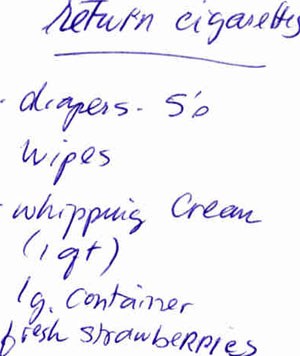 Return cigarettes
- diapers - 5's
wipes
- whipping Cream
(1 qt)
lg. Container
fresh strawberries